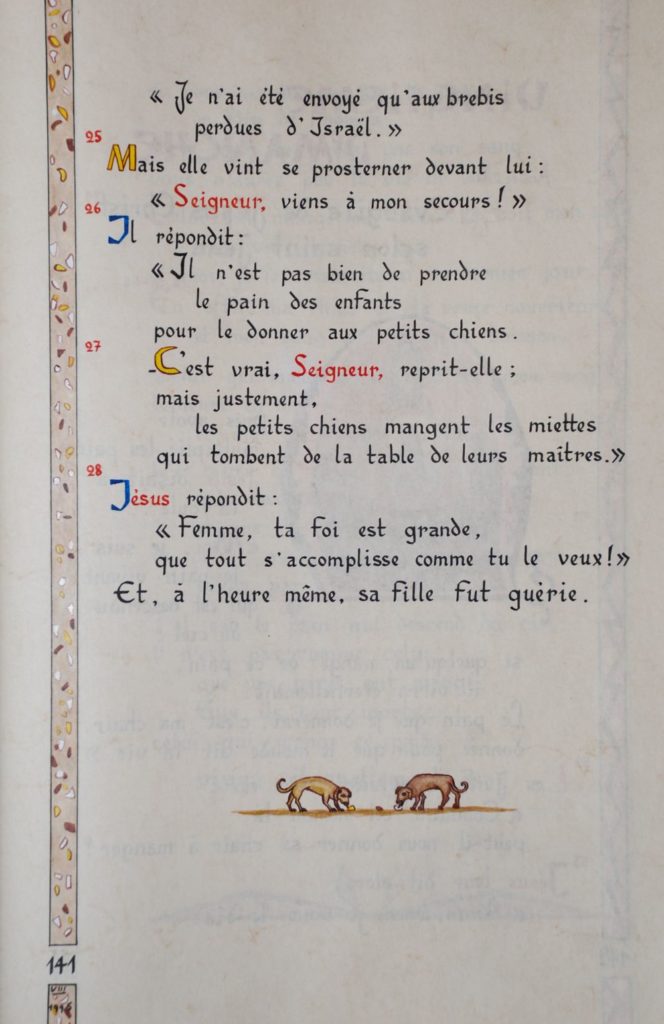 « Je n'ai été envoyé qu'aux brebis
perdues d'Israël. »
25
Mais elle vint se prosterner devant lui :
« Seigneur, viens à mon secours ! »
26
Il répondit :
« Il n'est pas bien de prendre
le pain des enfants
pour le donner aux petits chiens.
27
-C'est vrai, Seigneur, reprit-elle ;
mais justement,
les petits chiens mangent les miettes
qui tombent de la table de leurs maîtres. »
28
Jésus répondit :
« Femme, ta foi est grande,
que tout s'accomplisse comme tu le veux ! »
Et, à l'heure même, sa fille fut guérie.
141
VIII